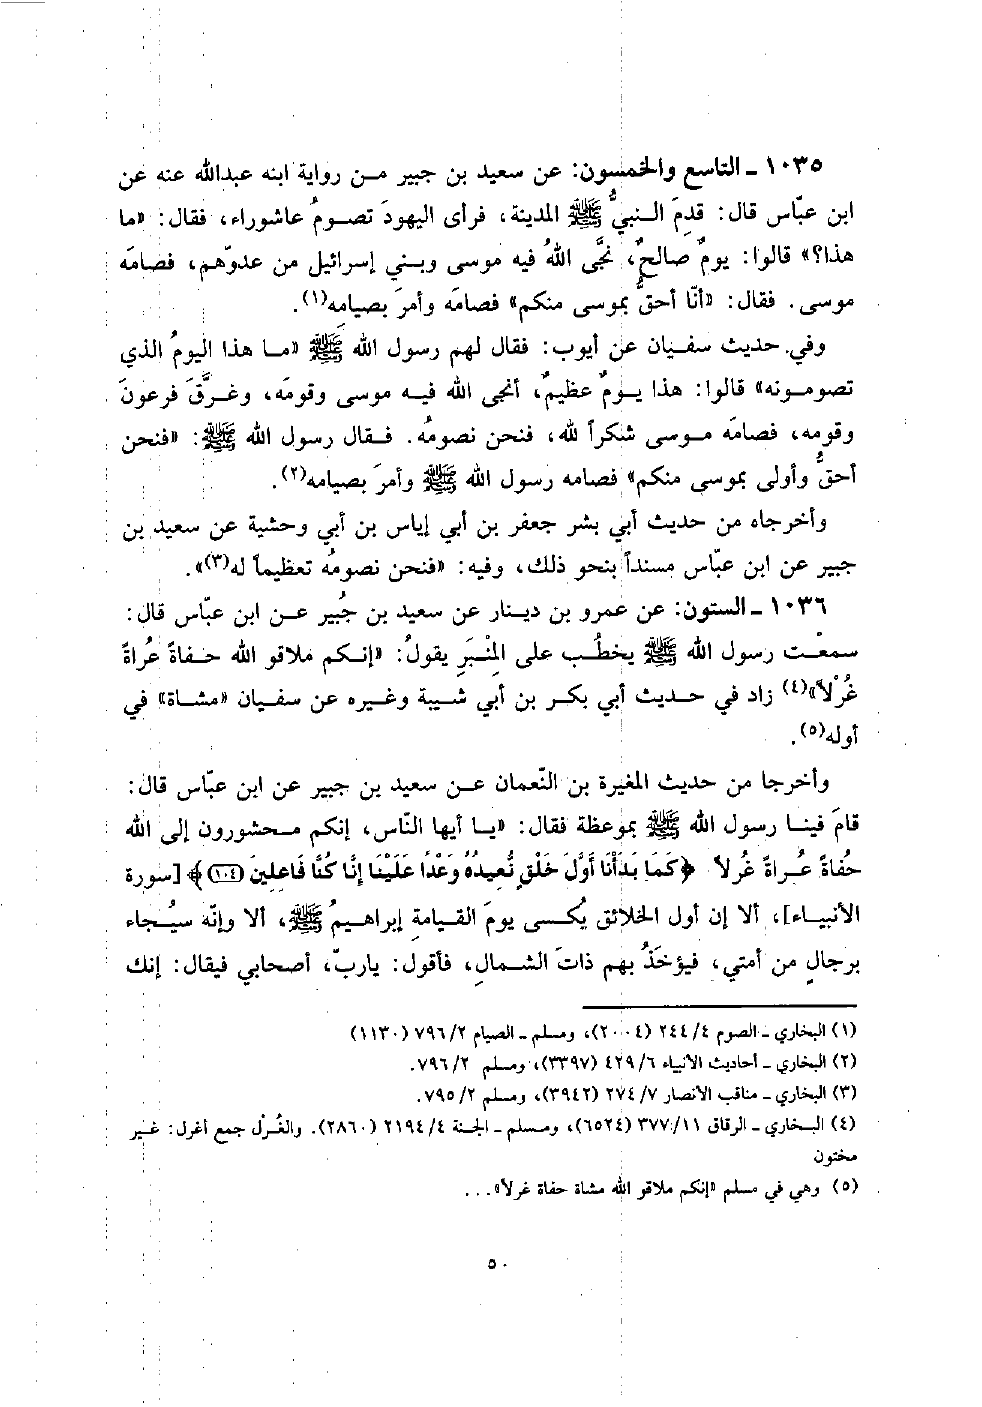 ١٠٣٥ ـ التاسع والخمسون: عن سعيد بن جبير مـن رواية ابنه عبدالله عنه عن
ابن عبّاس قال: قدِمَ النبيُّ ﷺ المدينة، فرأى اليهودَ تصـومُ عاشوراء، فقال: «ما
هذا؟» قالوا: يومٌ صالحٌ، نجَّى اللهُ فيه موسى وبني إسرائيل من عدوّهم، فصامَه
موسى. فقال: «أنّا أحقُّ بموسى منكم» فصامَه وأمرَ بصيامِه(١).
وفي حديث سفيان عن أيوب: فقال لهم رسول الله ﷺ «مـا هذا اليومُ الذي
تصومـونه» قالوا: هذا يـومٌ عظيمٌ، أنجى الله فيـه موسى وقومَه، وغرَّقَ فرعونَ
وقومه، فصامَه مـوسى شكراً لله، فنحن نصومُه. فـقال رسول الله ﷺ: «فنحن
أحقُّ وأولى بموسى منكم» فصامه رسول الله ﷺ وأمرَ بصيامه(٢).
وأخرجاه من حديث أبي بشر جعفر بن أبي إياس بن أبي وحشية عن سعيد بن
جبير عن ابن عبّاس مسنداً بنحو ذلك، وفيه: «فنحن نصومُه تعظيماً له(٣)».
١٠٣٦ ـ الستون: عن عمرو بن دينار عن سعيد بن جُبير عـن ابن عبّاس قال:
سمعْت رسول الله ﷺ يخطُب على المِنْبَرِ يقولُ: «إنـكم ملاقو الله حـفاةً عُراةً
غُرْلاً»(٤) زاد في حـديث أبي بكـر بن أبي شـيبة وغيره عن سفيان «مشـاة» في
أوله(٥).
وأخرجا من حديث المغيرة بن النّعمان عـن سعيد بن جبير عن ابن عبّاس قال:
قامَ فينـا رسول الله ﷺ بموعظة فقال: «يـا أيها النّاس، إنكم مـحشورون إلى الله
حُفاةً عُـراةً غُرلاً ﴿كَمَا بَدَأْنَا أَوَّلَ خَلْقٍ نُّعِيدُهُ وَعْدًا عَلَيْنَا إِنَّا كُنَّا فَاعِلِينَ (١٠٤)﴾ [سورة
الأنبيـاء]، ألا إن أول الخلائق يُكسى يومَ القيامةِ إبراهيمُ ﷺ، ألا وإنّه سيُـجاء
برجالٍ من أمتي، فيؤخَذُ بهم ذاتَ الشمـالِ، فأقول: ياربّ، أصحابي فيقال: إنك
(١) البخاري ـ الصوم ٤/ ٢٤٤ (٢٠٠٤)، ومسلم ـ الصيام ٢/ ٧٩٦ (١١٣٠)
(٢) البخاري ـ أحاديث الأنبياء ٦/ ٤٢٩ (٣٣٩٧)، ومسلم ٢/ ٧٩٦.
(٣) البخاري ـ مناقب الأنصار ٧/ ٢٧٤ (٣٩٤٢)، ومسلم ٢/ ٧٩٥.
(٤) البـخاري ـ الرقاق ١١/ ٣٧٧ (٦٥٢٤)، ومـسلم ـ الجنة ٤/ ٢١٩٤ (٢٨٦٠). والغُرْل جمع أغرل: غـير
مختون
(٥) وهي في مسلم «إنكم ملاقو الله مشاة حفاة غرلاً»...
٥٠